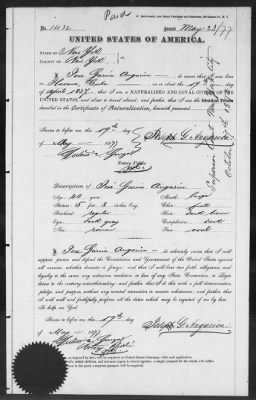 No. 1412
Issued May 23/77
UNITED STATES OF AMERICA.
STATE OF New York
COUNTY OF New York
I, Jose Garcia Angarica do swear that I was born
in Havana, Cuba on the 19th day
of April 1837; that I am a NATURALIZED AND LOYAL CITIZEN OF THE
UNITED STATES, and about to travel abroad; and further, that I am the identical Person
described in the Certificate of Naturalization, herewith presented.
Sworn to before me this 19th day
of May 1877
Joseph G. Angarica
Notary Public
Description of Jose Garcia Angarica
Age: 40 years
Mouth:
Stature: 5 feet 8 inches Eng.
Chin:
Forehead: regular
Hair: Dark brown
Eyes: dark gray
Complexion: dark
Nose:
Face: oval
I, Jose Garcia Angarica do solemnly swear that I will
support, protect and defend the Constitution and Government of the United States against
all enemies, whether domestic or foreign; and that I will bear true faith, allegiance and
loyalty to the same, any ordinance, resolution or law of any State, Convention or Legis-
lature to the contrary notwithstanding; and further, that I do this with a full determination,
pledge and purpose, without any mental reservation or evasion whatsoever; and further, that
I will well and faithfully perform all the duties which may be required of me by law:
So help me God.
Sworn to before me this 19th day
of May 1877
Joseph G. Angarica